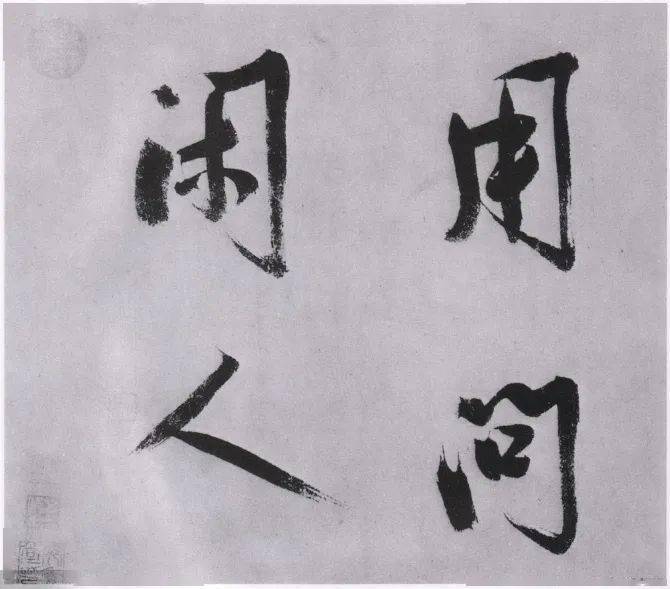 用問
閑人